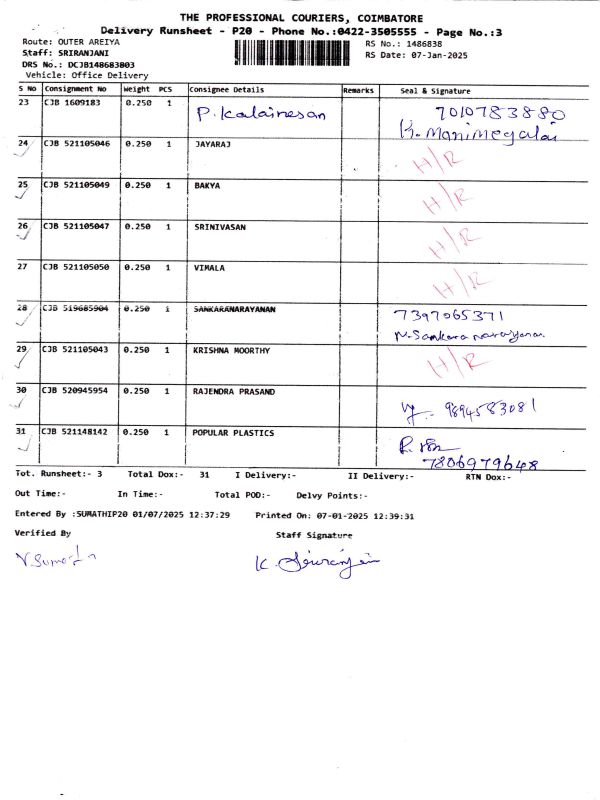 THE PROFESSIONAL COURIERS, COIMBATORE
Delivery Runsheet - P20 - Phone No.:0422-3505555 - Page No.:3
Route: OUTER AREIYA
RS No.: 1486838
Staff: SRIRANJANI
RS Date: 07-Jan-2025
DRS No.: DCJB148683803
Vehicle: Office Delivery
S No Consignment No Weight PCS Consignee Details Remarks Seal & Signature
23 CJB 1609183 0.250 1 P. Kalainesan 7010783880
K. Manimegalai
24 CJB 521105046 0.250 1 JAYARAJ H/R
25 CJB 521105049 0.250 1 BAKYA H/R
26 CJB 521105047 0.250 1 SRINIVASAN H/R
27 CJB 521105050 0.250 1 VIMALA H/R
28 CJB 519685904 0.250 1 SANKARANARAYANAN 7397065371
N. Sankara narayanan
29 CJB 521105043 0.250 1 KRISHNA MOORTHY H/R
30 CJB 520945954 0.250 1 RAJENDRA PRASAND 9894583081
31 CJB 521148142 0.250 1 POPULAR PLASTICS
7806979648
Tot. Runsheet:- 3 Total Dox:- 31 I Delivery:- II Delivery:- RTN Dox:-
Out Time:- In Time:- Total POD:- Delvy Points:-
Entered By :SUMATHIP20 01/07/2025 12:37:29 Printed On: 07-01-2025 12:39:31
Verified By Staff Signature
V. Sumathi K. Sriranjani